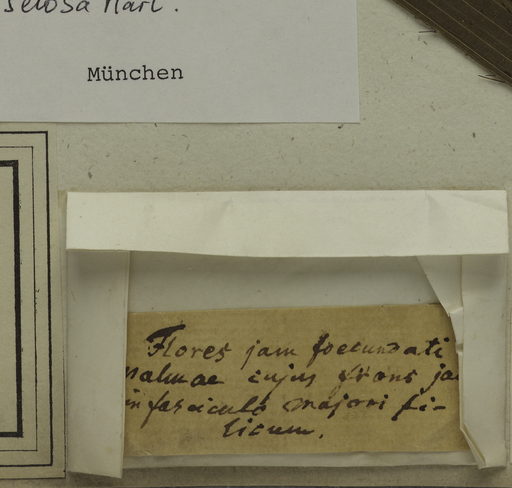 setosa Mart.
München
Flores jam foecundati
palmae cujus frons ja
in fasciculo majori fi-
licum.